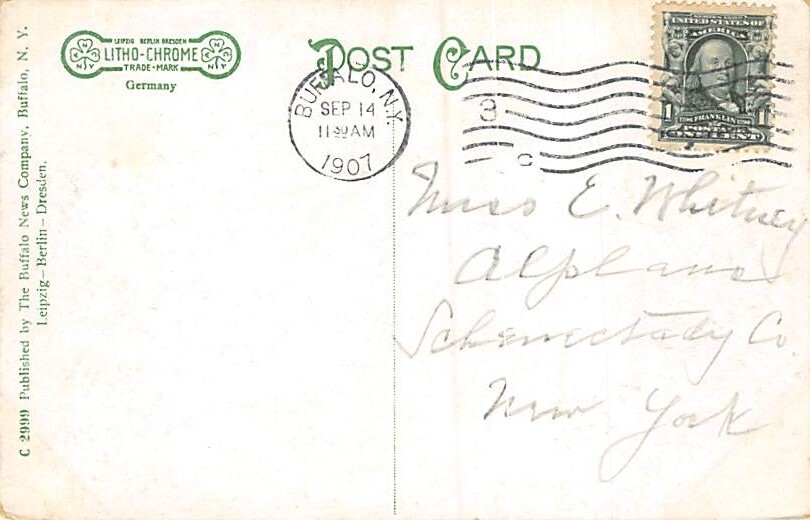 LEIPZIG BERLIN DRESDEN
LITHO-CHROME
TRADE-MARK
N Y
N Y
Germany
POST CARD
BUFFALO, N.Y.
SEP 14
11 30 AM
1907
3
C
SERIES 1902
UNITED STATES OF
AMERICA
FRANKLIN
1 1
POSTAGE
ONE CENT
Miss E. Whitney
Alplaus
Schenectady Co
New York
C 2999 Published by The Buffalo News Company, Buffalo, N. Y.
Leipzig – Berlin – Dresden.